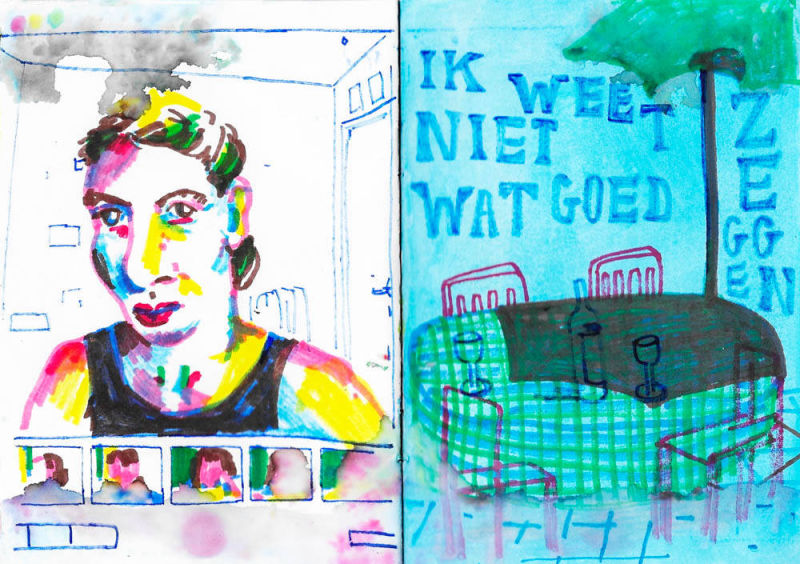 IK WEET
NIET
WAT GOED
ZEGGEN